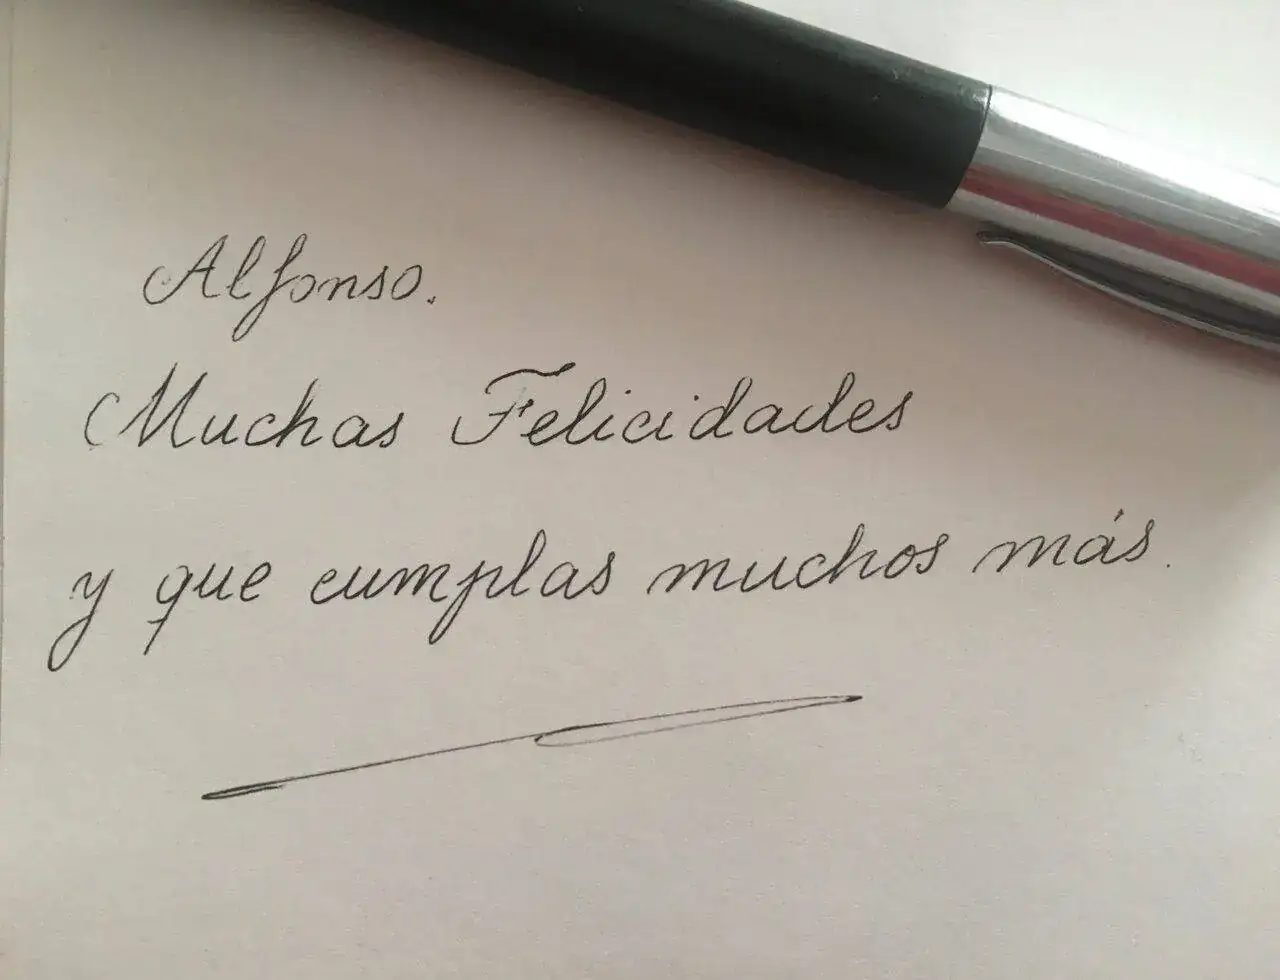 Alfonso.
Muchas Felicidades
y que cumplas muchos más.